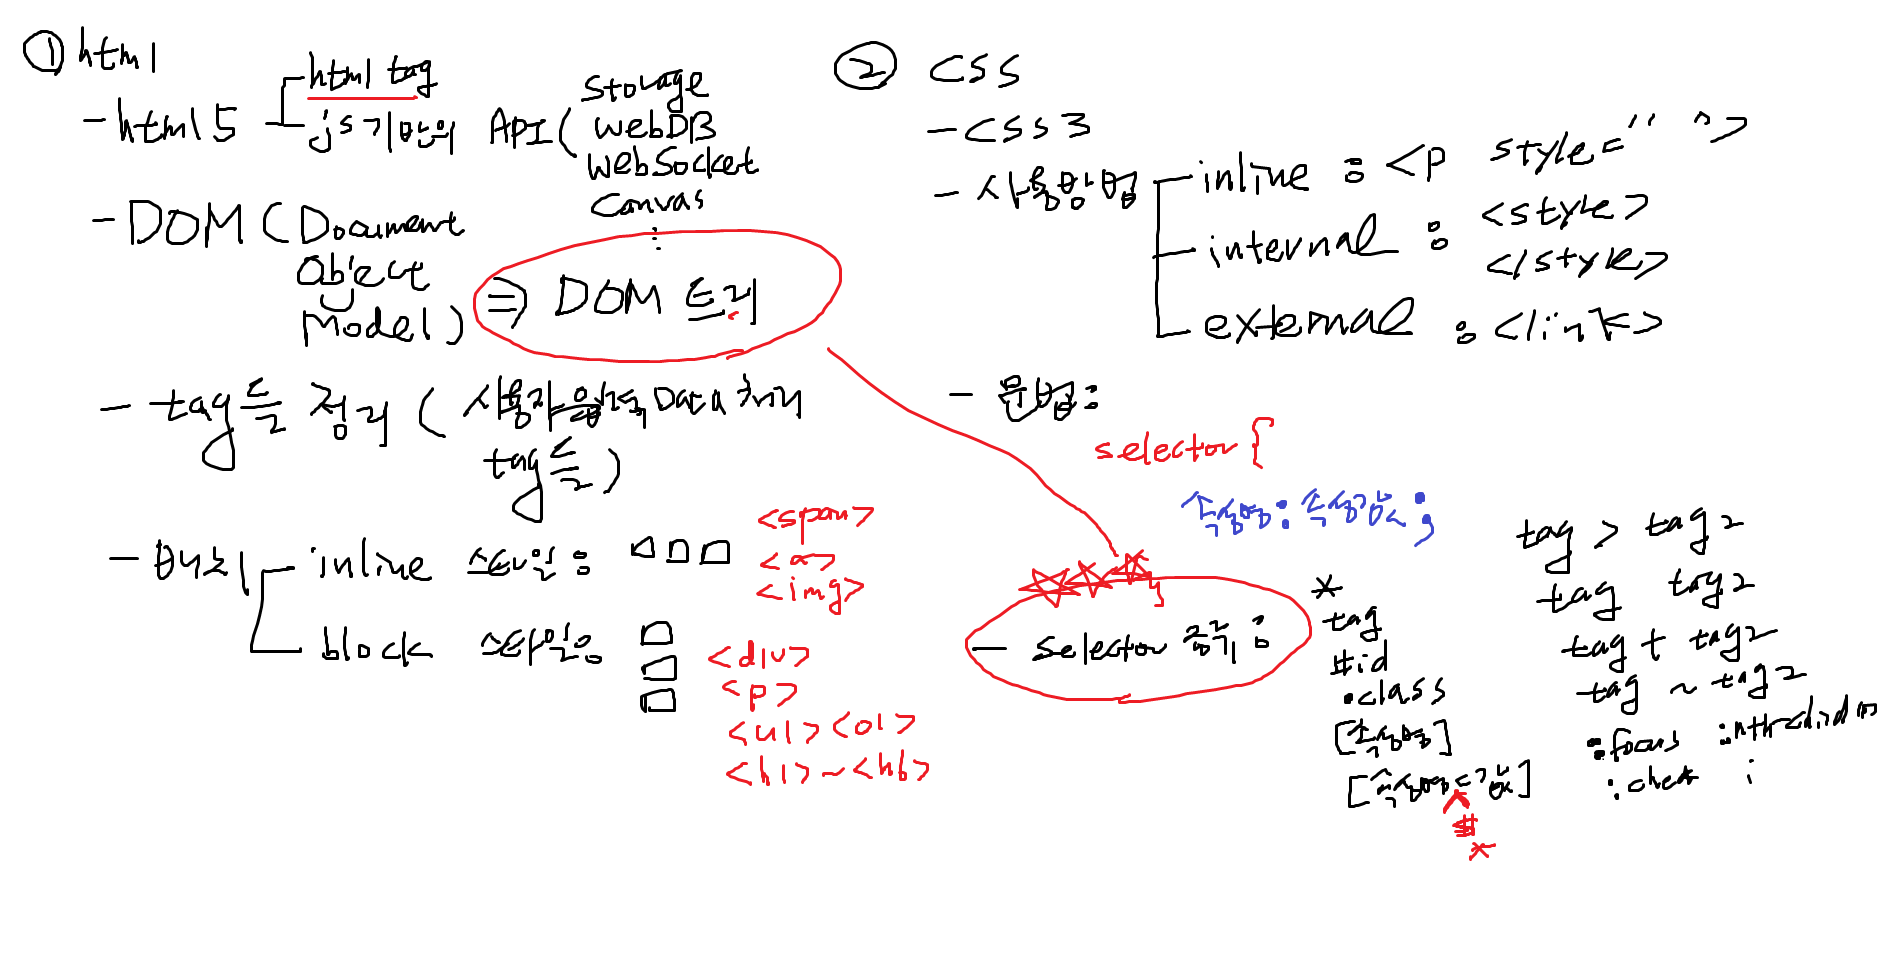 ① html
- html5
html tag
js기반의 API(
Storage
WebDB
WebSocket
Canvas
⋮
- DOM (Document
Object
Model)
⇒ DOM 트리
- tag들 정리 ( 사용자 입력 Data 처리
tag들 )
- 배치
inline 스타일 :
<span>
<a>
<img>
block 스타일 :
<div>
<p>
<ul> <ol>
<h1> ~ <h6>
② CSS
- CSS3
- 사용방법
inline : <p style=" ">
internal : <style>
</style>
external : <link>
- 문법 :
selector {
속성명 : 속성값 ;
}
- selector 종류 :
*
tag
#id
.class
[속성명]
[속성명=값]
^
$
*
tag > tag2
tag tag2
tag + tag2
tag ~ tag2
:focus :nth-child(n)
:check ⋮